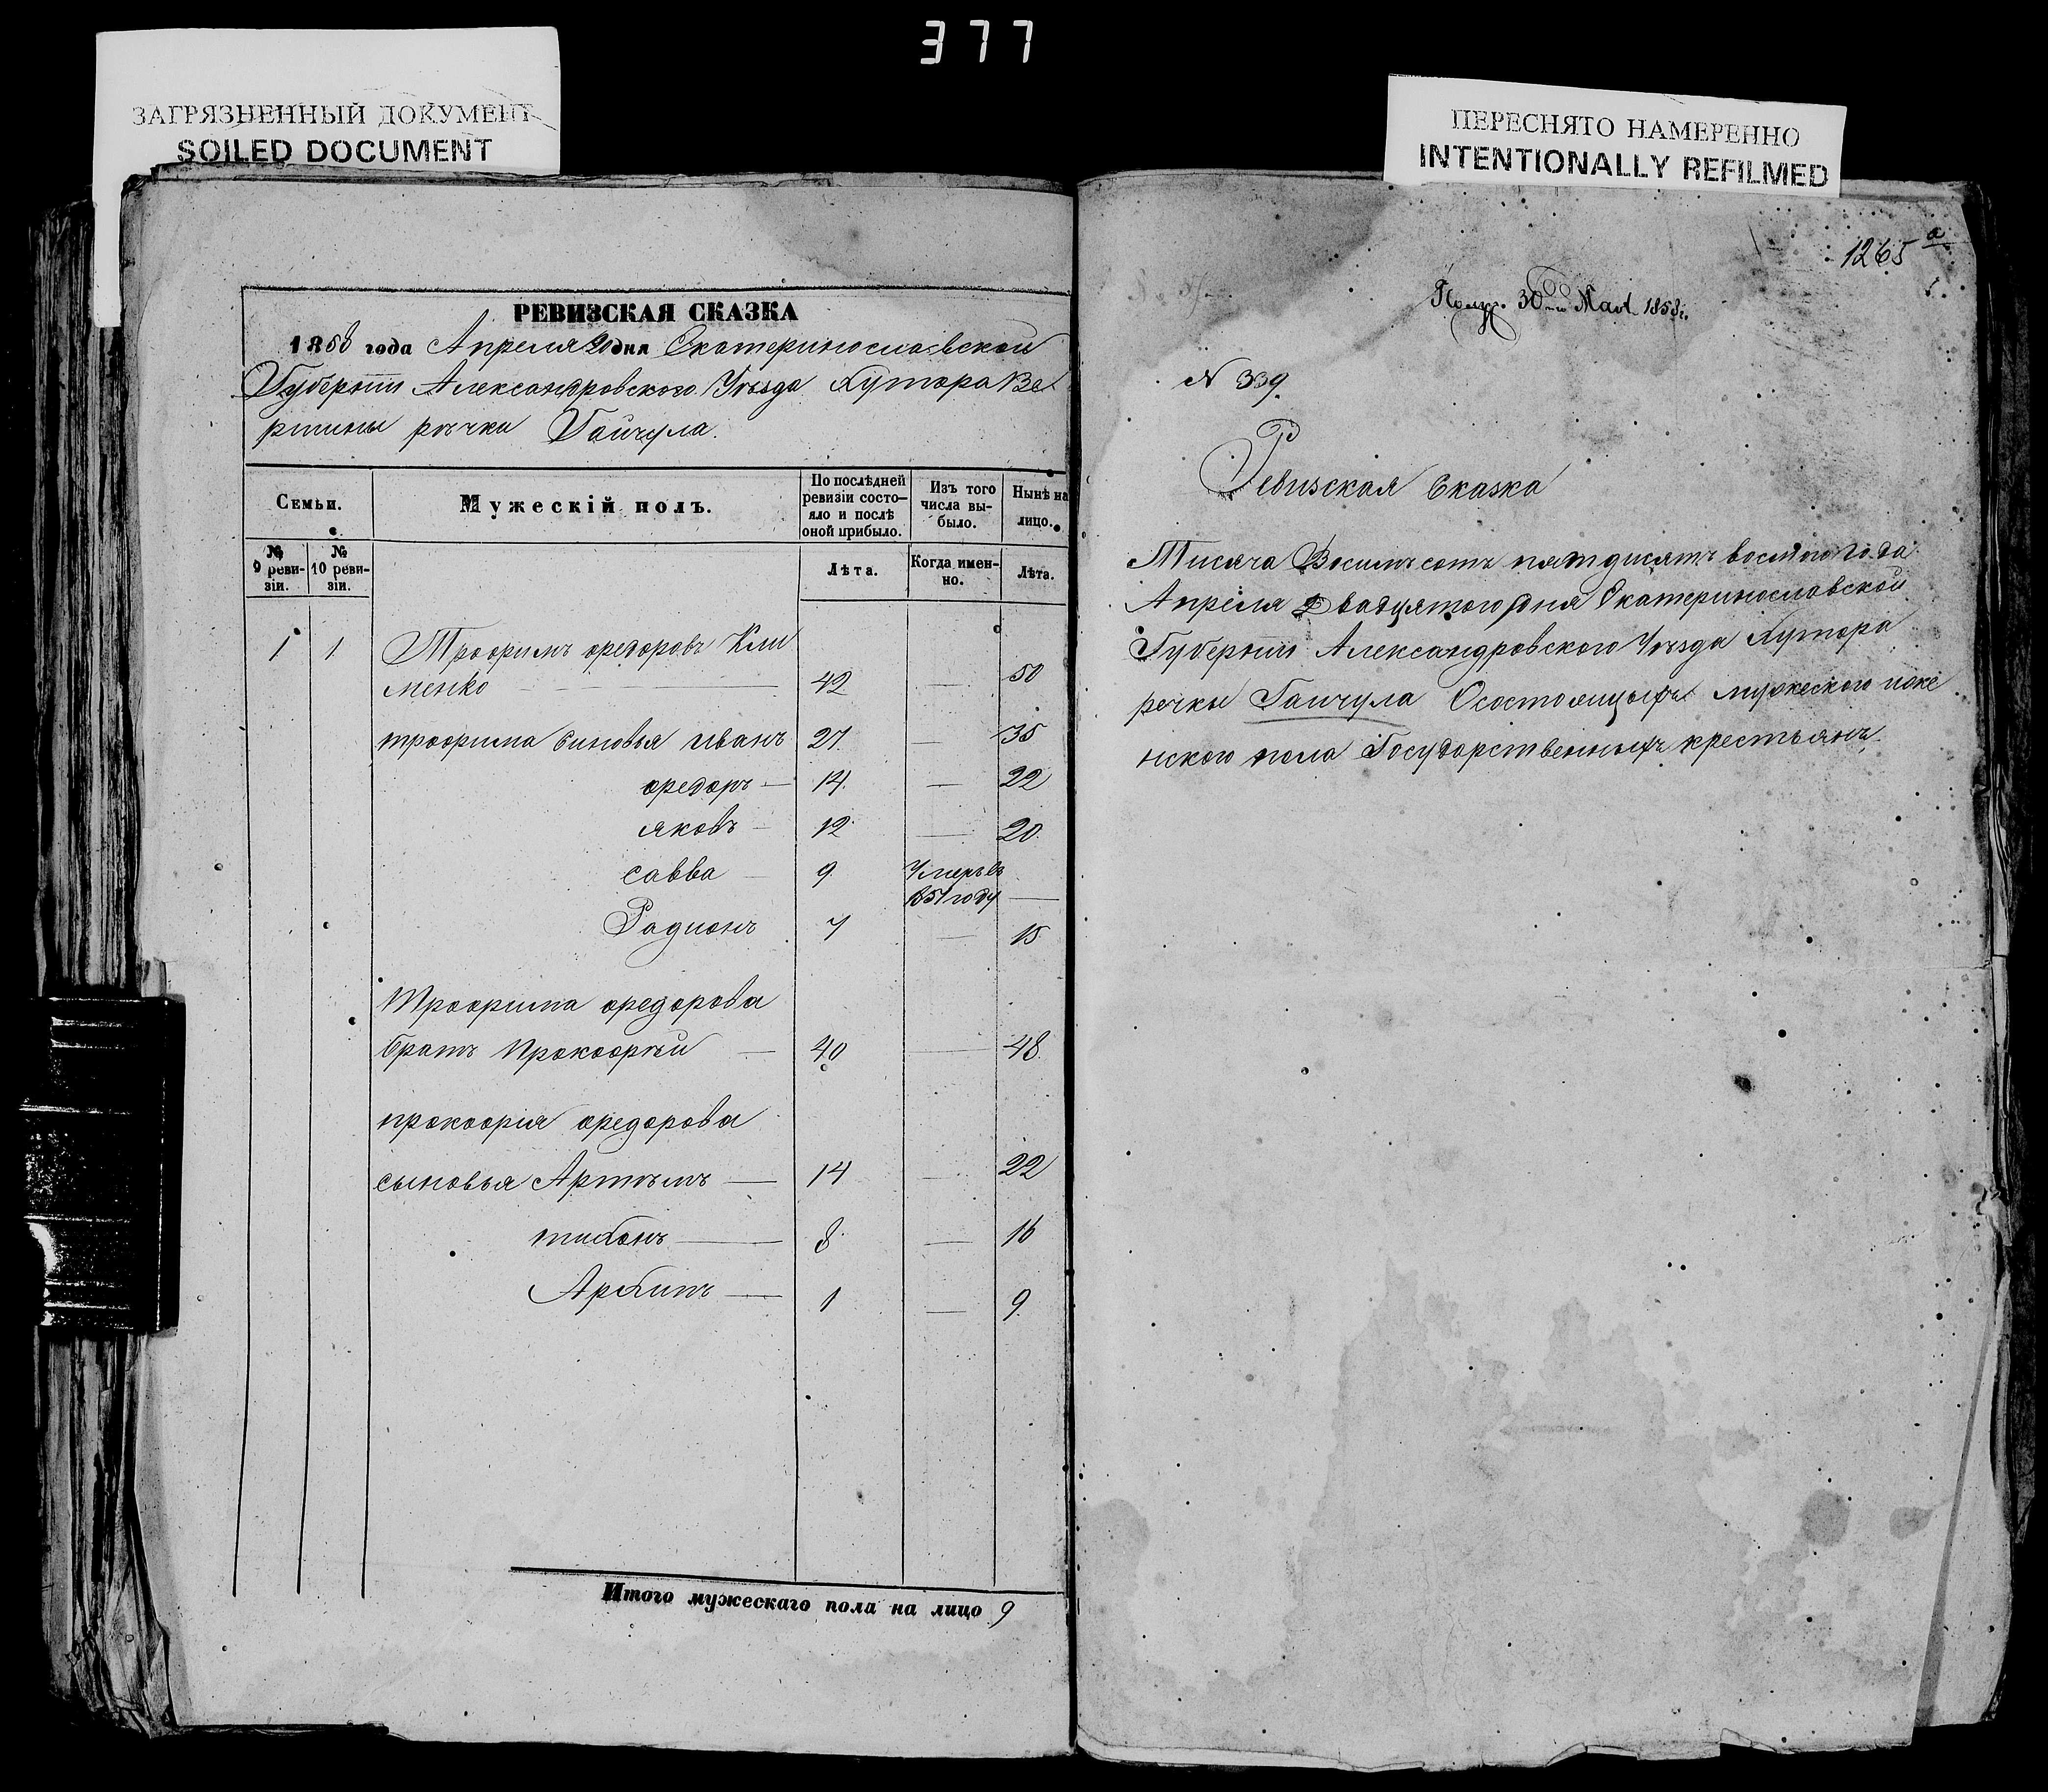 377
ЗАГРЯЗНЕННЫЙ ДОКУМЕНТ
SOILED DOCUMENT
РЕВИЗСКАЯ СКАЗКА
1858 года Апреля 20 дня Екатеринославской
Губернти Александровского Уъзда Хутора Ве
ршины ръчки Гайчула.
Семьи.
Мужескій полъ.
По послѣдней ревизіи состояло и послѣ оной прибыло.
Изъ того числа выбыло.
Нынѣ на лицо.
№ 9 ревизіи.
№ 10 ревизіи.
Лѣта.
Когда именно.
Лѣта.
1 1 Трофимъ федоровъ Кли
менко 42 — 50
трофима синовья иванъ 27. — 35
федоръ — 14. — 22
яковъ — 12 — 20.
савва — 9 Умеръ въ
1851 году —
Радионъ 7 — 15
Трофима федорова
братъ Прокофъй — 40 — 48.
прокофія федорова
сыновья Артъмъ — 14 — 22
тихонъ — 8. — 16
Архипъ — 1 — 9.
Итого мужескаго пола на лицо 9
ПЕРЕСНЯТО НАМЕРЕННО
INTENTIONALLY REFILMED
1265 а
Получ. 30го Мая 1858 г.
N 339.
Ревизская Сказка
Тисяча Восимъсотъ пятдисятъ восмого года
Апреля Двадцятого дня Екатеринославской
Губернти Александровского Уъзда Хутора
речки Гаичула Осостоящыхъ мужеского иже
нского пола Государственныхъ крестьянъ.